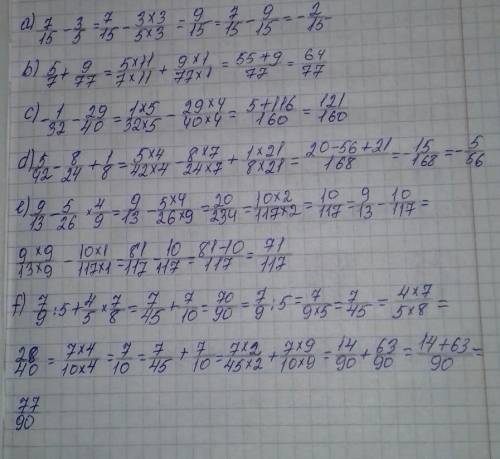 a) 7/15 - 3/5 = 7/15 - 3×3/5×3 = 9/15 = 7/15 - 9/15 = -2/15
b) 5/7 + 9/77 = 5×11/7×11 + 9×1/77×1 = 55+9/77 = 64/77
c) -1/32 - 29/40 = 1×5/32×5 - 29×4/40×4 = 5+116/160 = 121/160
d) 5/42 - 8/24 + 1/8 = 5×4/42×4 - 8×7/24×7 + 1×21/8×21 = 20-56+21/168 = -15/168 = -5/56
e) 9/13 - 5/26 × 4/9 = 9/13 - 5×4/26×9 = 20/234 = 10×2/117×2 = 10/117 = 9/13 - 10/117 =
9×9/13×9 - 10×1/117×1 = 81/117 - 10/117 = 81-10/117 = 71/117
f) 7/9 : 5 + 4/5 × 7/8 = 7/45 + 7/10 = 70/90 = 7/9 : 5 = 7/9×5 = 7/45 = 4×7/5×8 =
28/40 = 7×4/10×4 = 7/10 = 7/45 + 7/10 = 7×2/45×2 + 7×9/10×9 = 14/90 + 63/90 = 14+63/90 =
77/90